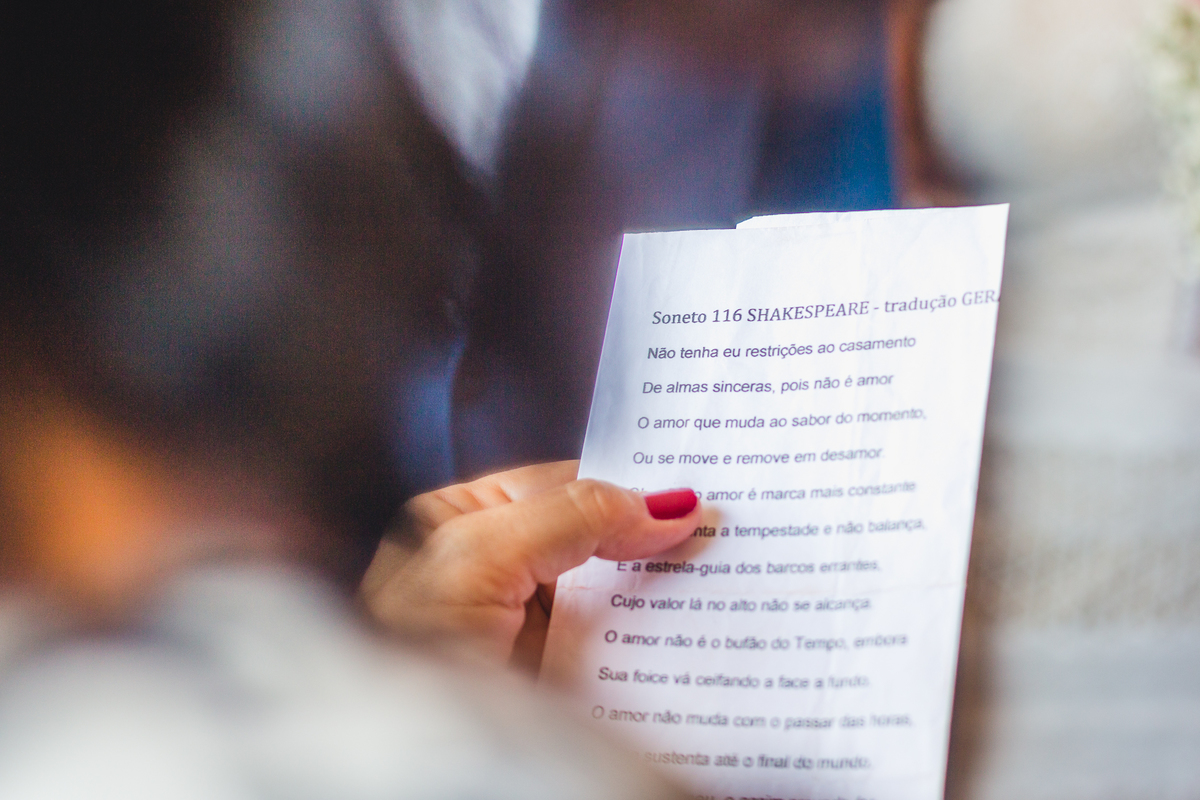 Soneto 116 SHAKESPEARE - tradução GER
Não tenha eu restrições ao casamento
De almas sinceras, pois não é amor
O amor que muda ao sabor do momento,
Ou se move e remove em desamor.
amor é marca mais constante
a tempestade e não balança,
É a estrela-guia dos barcos errantes,
Cujo valor lá no alto não se alcança.
O amor não é o bufão do Tempo, embora
Sua foice vá ceifando a face a fundo.
O amor não muda com o passar das horas,
sustenta até o final do mundo.